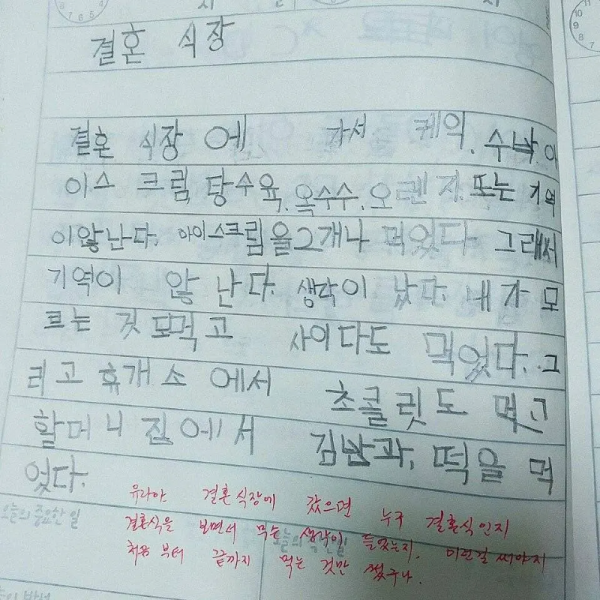 결혼 식장
결혼 식장 에 가서 케익, 수박, 아
이스 크림, 탕수육, 옥수수, 오렌지, 또는 기억
이않난다. 아이스크림을2개나 먹었다. 그래서
기억이 않난다. 생각이 났다. 내가 모
르는 것 도먹고 사이다도 먹었다. 그
리고 휴개소 에서 초콜릿도 먹고
할머니 집에서 김밥과, 떡을 먹
었다.
유라야 결혼식장에 갔으면 누구 결혼식인지
결혼식을 보면서 무슨 생각이 들었는지, 이런걸 써야지
처음 부터 끝까지 먹는 것만 썼구나.
오늘의 중요한 일